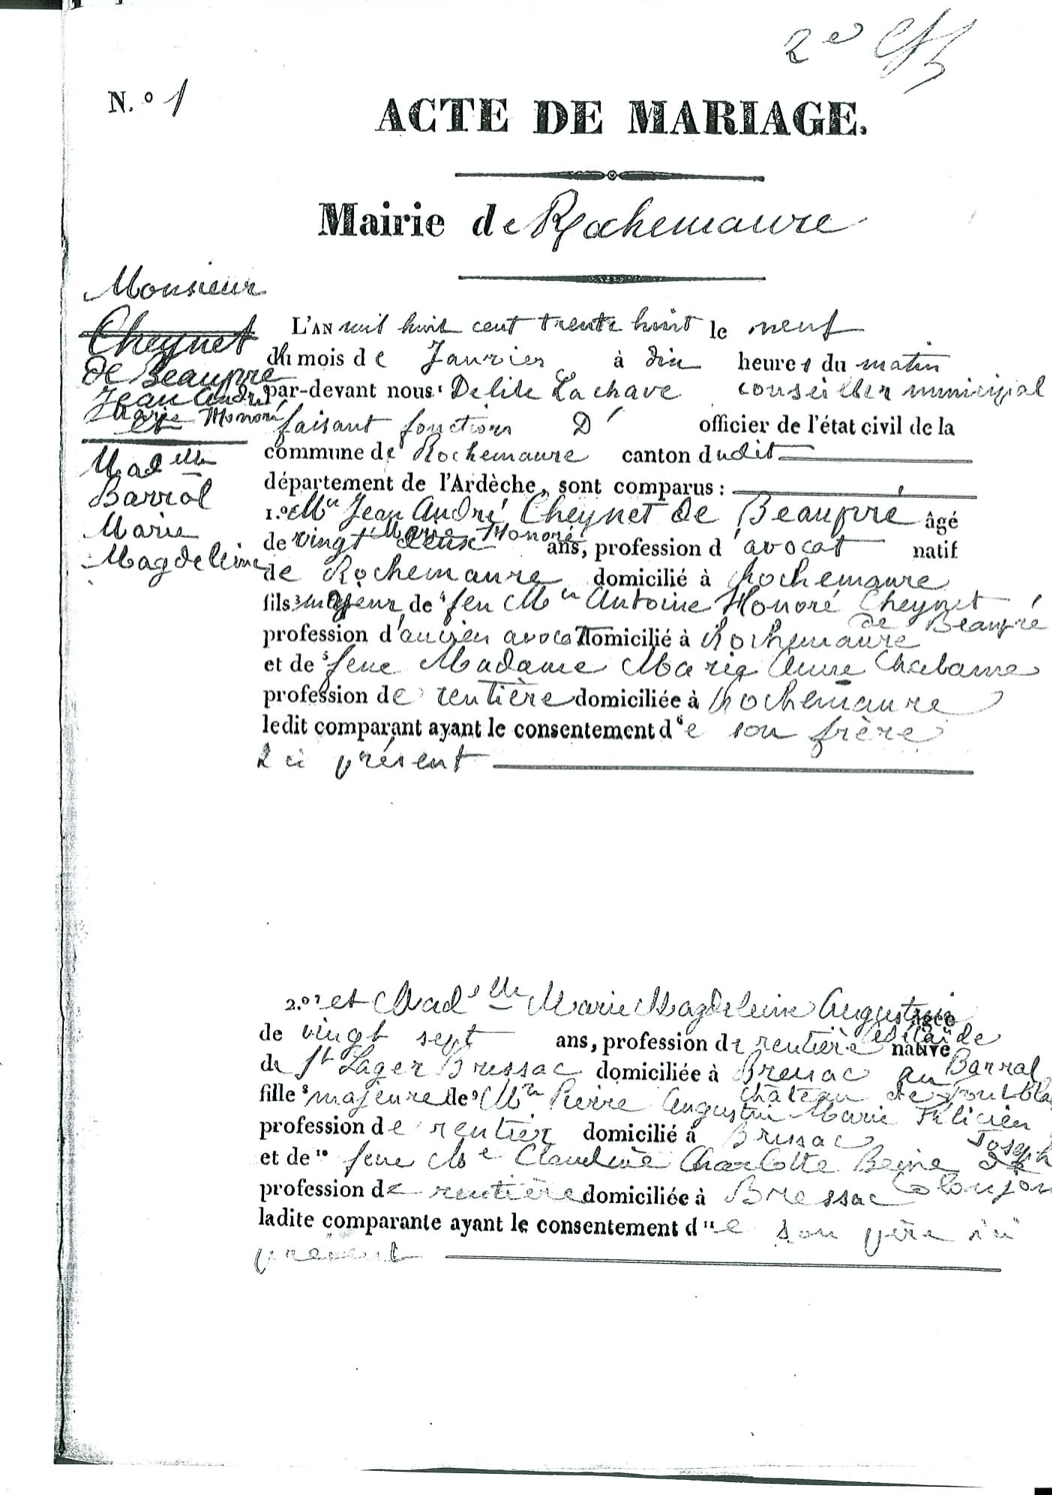 2e Ep
N.° 1
ACTE DE MARIAGE.
Mairie de Rochemaure
Monsieur
Cheynet
de Beaupré
Jean André
Marie Honoré
Madelle
Barral
Marie
Magdeleine
L'AN mil huit cent trente huit le neuf
du mois de Janvier à dix heures du matin
par-devant nous Delile Lachave conseiller municipal
faisant fonctions D' officier de l'état civil de la
commune de Rochemaure canton dudit
département de l'Ardèche, sont comparus :
1.° Mr Jean André Cheynet de Beaupré âgé
Marie Honoré
de vingt deux ans, profession d'avocat natif
de Rochemaure domicilié à Rochemaure
fils majeur de feu Mr Antoine Honoré Cheynet
de Beaupré
profession d'ancien avocat domicilié à Rochemaure
et de feue Madame Marie Anne Chabanne
profession de rentière domiciliée à Rochemaure
ledit comparant ayant le consentement de son frère
ici présent
2.° et Madelle Marie Magdeleine Augustine âgée
Adélaïde
de vingt sept ans, profession de rentière native
Barral
de St Lager Bressac domiciliée à Bressac au
château de
fille majeure de Mr Pierre Augustin Marie Félicien
Joseph
profession de rentier domicilié à Bressac
et de feue Me Claudine Charlotte Reine de
Colonjon
profession de rentière domiciliée à Bressac
ladite comparante ayant le consentement de son père ici
présent